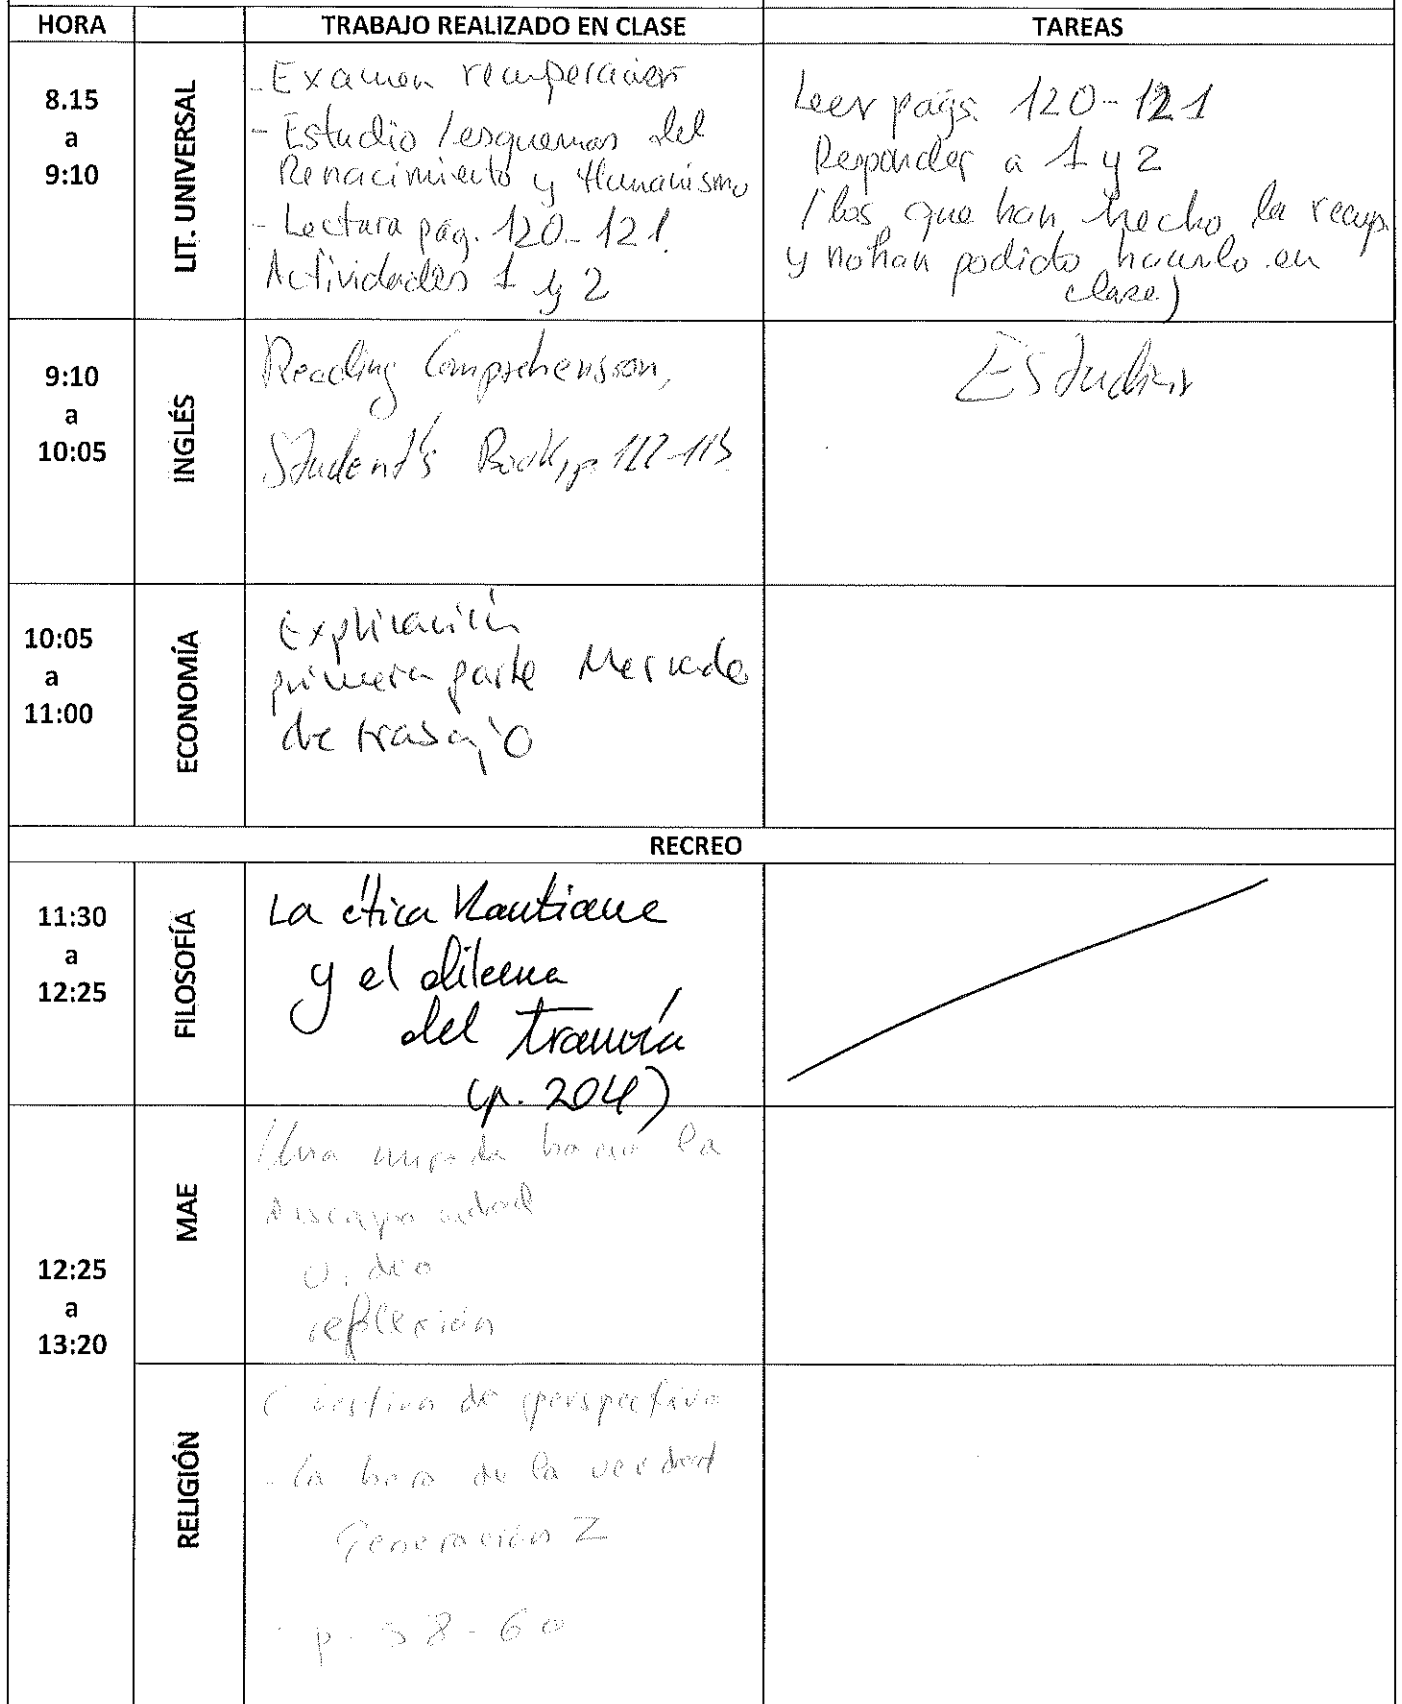 HORA TRABAJO REALIZADO EN CLASE TAREAS
8.15
a
9:10
LIT. UNIVERSAL
- Examen recuperación
- Estudio / esquemas del
Renacimiento y Humanismo
- Lectura pág. 120-121.
Actividades 1 y 2
Leer págs. 120-121
Responder a 1 y 2
(los que han hecho la recup.
y no han podido hacerlo en
clase)
9:10
a
10:05
INGLÉS
Reading Comprehension,
Student's Book, p. 112-113
Estudiar
10:05
a
11:00
ECONOMÍA
Explicación
primera parte Mercado
de trabajo
RECREO
11:30
a
12:25
FILOSOFÍA
La ética Kantiana
y el dilema
del tranvía
(p. 204)
12:25
a
13:20
MAE
Una mirada hacia la
discapacidad
reflexión
RELIGIÓN
Cuestión de perspectiva
- La hora de la verdad
Generación Z
- p. 58-60